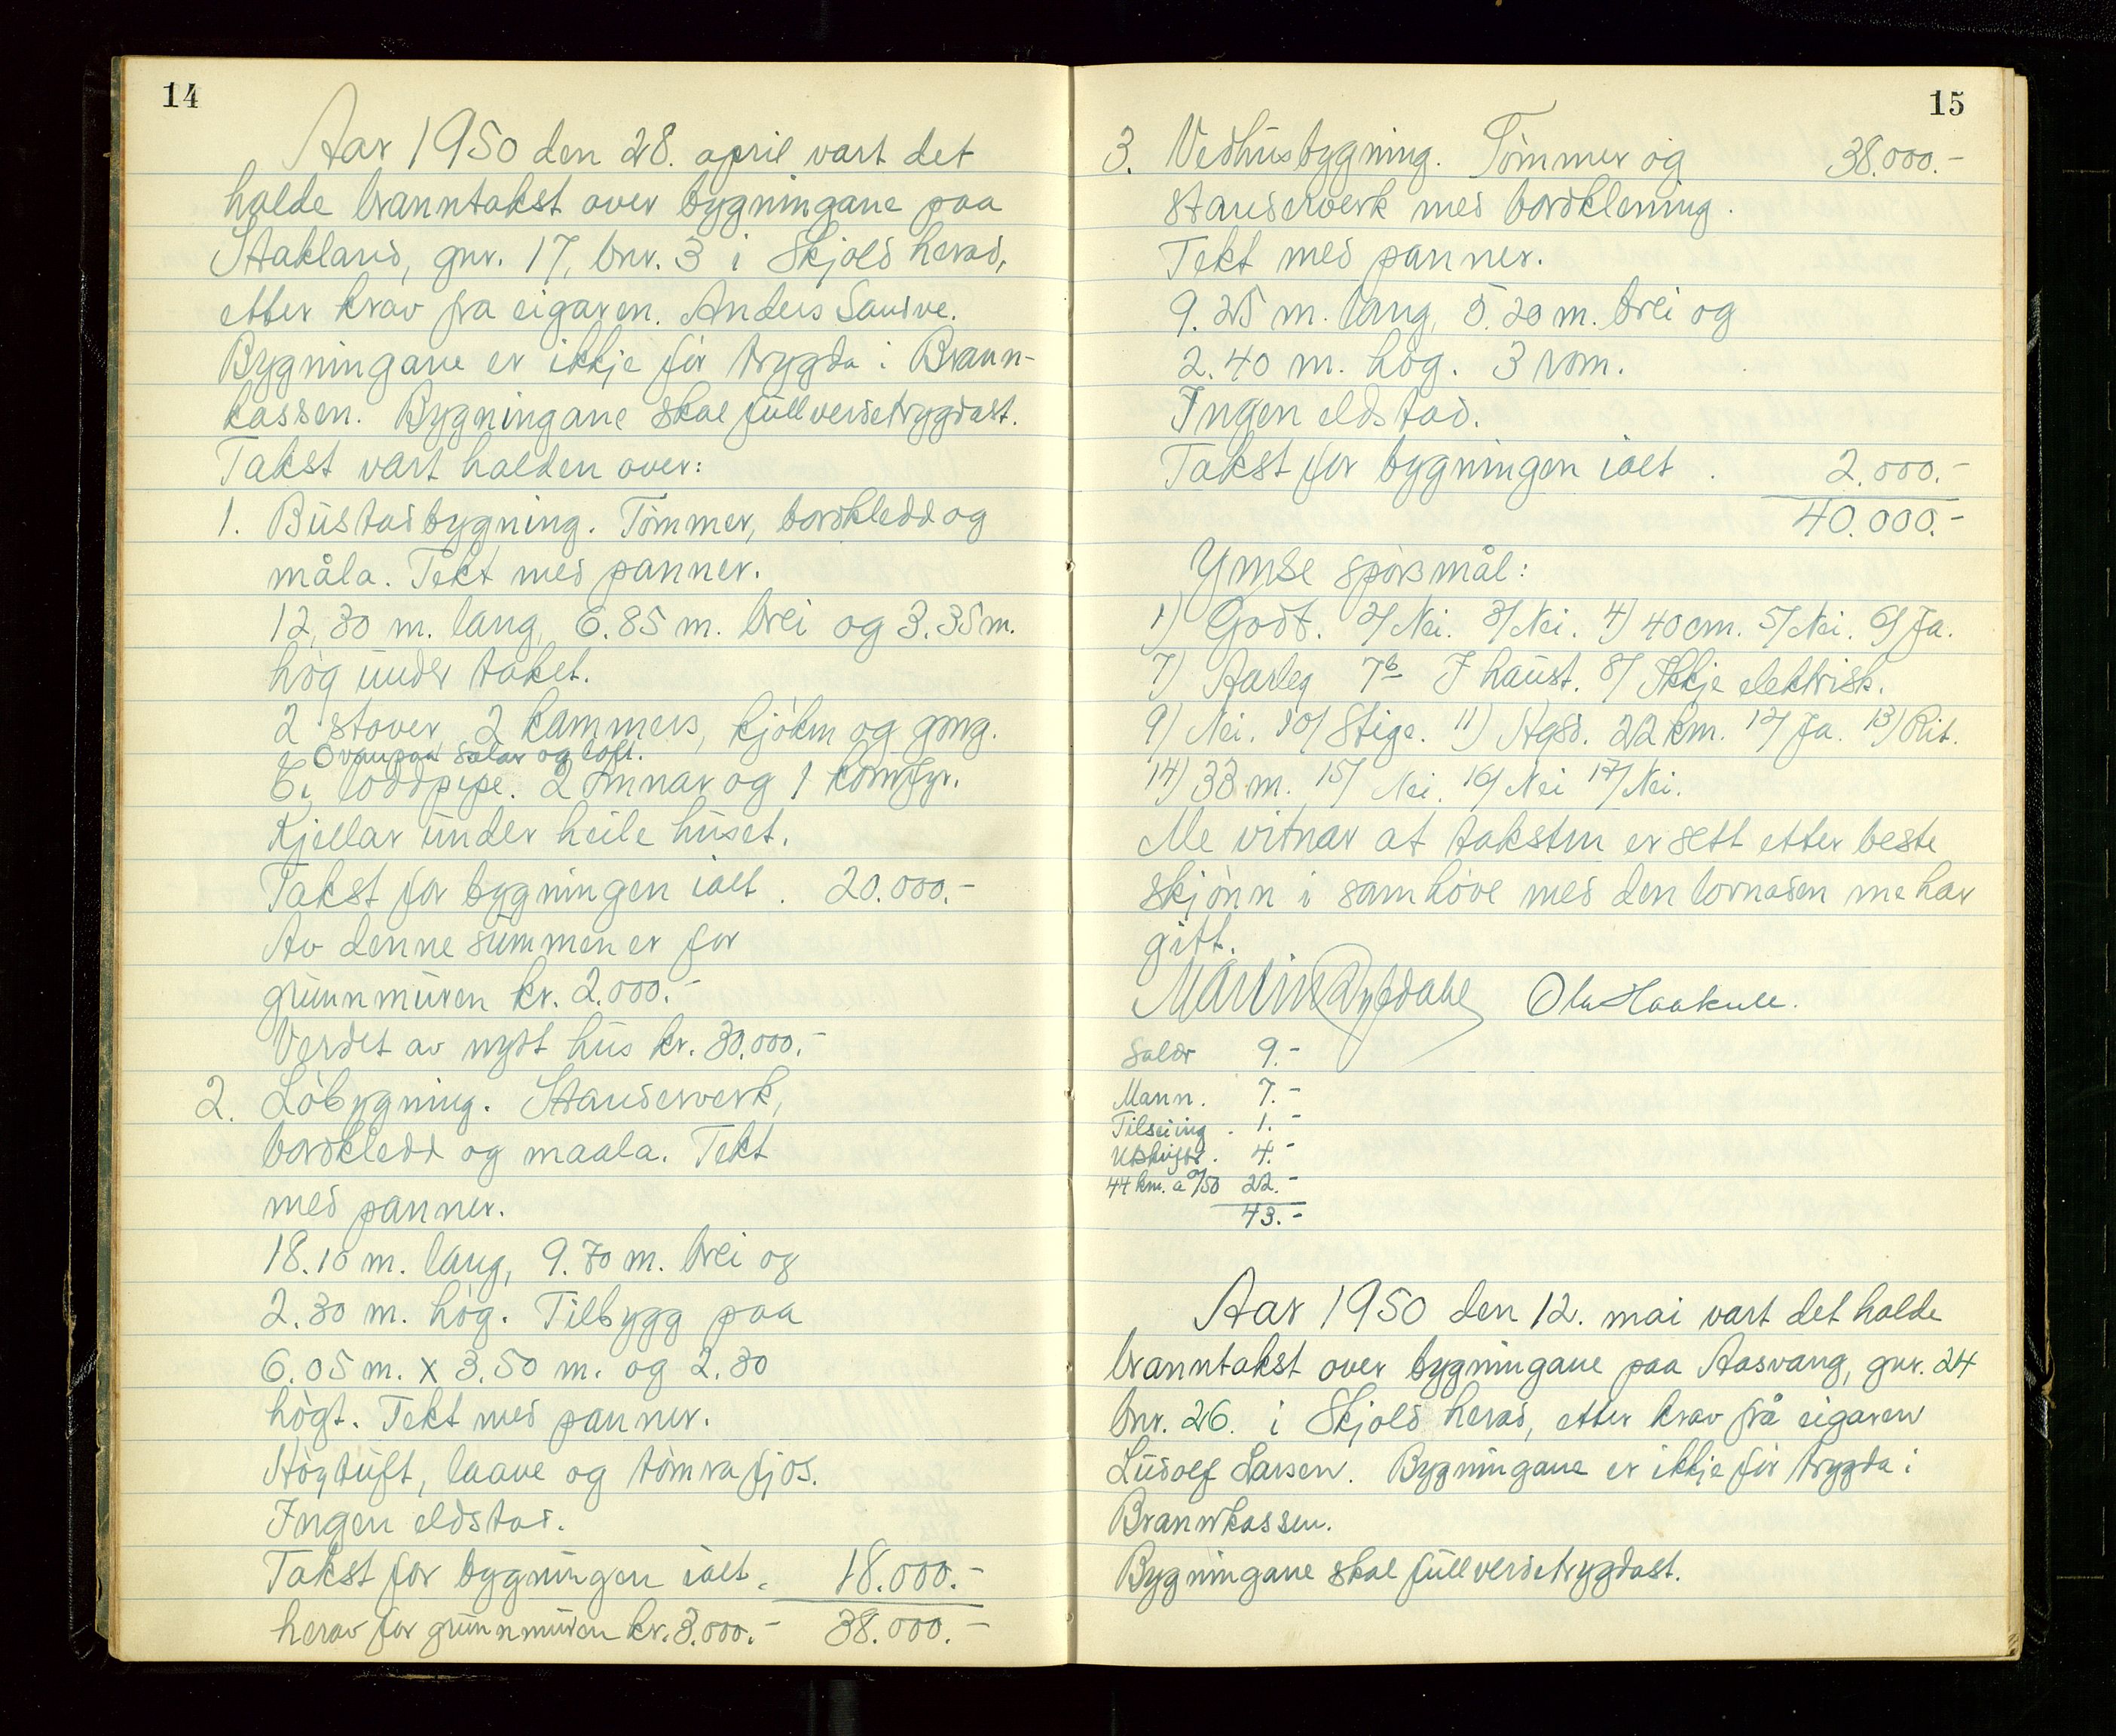 14
Aar 1950 den 28. april vart det
halde branntakst over bygningane paa
Stakland, gnr. 17, bnr. 3 i Skjold herad,
etter krav fra eigaren. Anders Sandve.
Bygningane er ikkje før trygda i Brann-
kassen. Bygningane skal fullverdetrygdast.
Takst vart halden over:
1. Bustadbygning. Tømmer, bordkledd og
måla. Tekt med panner.
12,30 m. lang, 6.85 m. brei og 3.35 m.
høg under taket.
2 stover, 2 kammers, kjøken og gang.
Ovanpaa salar og loft.
Ei loddpipe. 2 omnar og 1 komfyr.
Kjellar under heile huset.
Takst for bygningen ialt . 20.000.-
Av denne summen er for
grunnmuren kr. 2.000.-
Verdet av nytt hus kr. 30.000.-
2. Løbygning. Standerverk,
bordkledd og maala. Tekt
med panner.
18.10 m. lang, 9.70 m. brei og
2.30 m. høg. Tilbygg paa
6.05 m. x 3.50 m. og 2.30
høgt. Tekt med panner.
Høgtuft, laave og tømra fjos.
Ingen eldstad.
Takst for bygningen ialt. 18.000.-
herav for grunnmuren kr. 3.000.- 38.000.-
15
3. Vedhusbygning. Tømmer og 38.000.-
standerverk med bordkledning.
Tekt med panner.
9.25 m. lang, 5.20 m. brei og
2.40 m. høg. 3 rom.
Ingen eldstad.
Takst for bygningen ialt . 2.000.-
40.000.-
Ymse spørsmål:
1) Godt. 2/ Nei. 3/ Nei. 4) 40 cm. 5/ Nei. 6/ Ja.
7) Aarleg 7b I haust. 8/ Ikkje elektrisk.
9) Nei. 10/ Stige. 11) Hgsd. 22 km. 12/ Ja. 13) Rit.
14) 33 m. 15/ Nei. 16/ Nei 17/ Nei.
Me vitnar at taksten er sett etter beste
skjønn i samhøve med den lovnaden me har
gitt.
Martin Ola Haakull.
Salær 9.-
Mann. 7.-
Tilseiing . 1.-
Utskrift . 4.-
44 km. a 0/50 22.-
43.-
Aar 1950 den 12. mai vart det halde
branntakst over bygningane paa Aasvang, gnr. 24
bnr. 26. i Skjold herad, etter krav frå eigaren
Ludolf Larsen. Bygningane er ikkje før trygda i
Brannkassen.
Bygningane skal fullverdetrygdast.